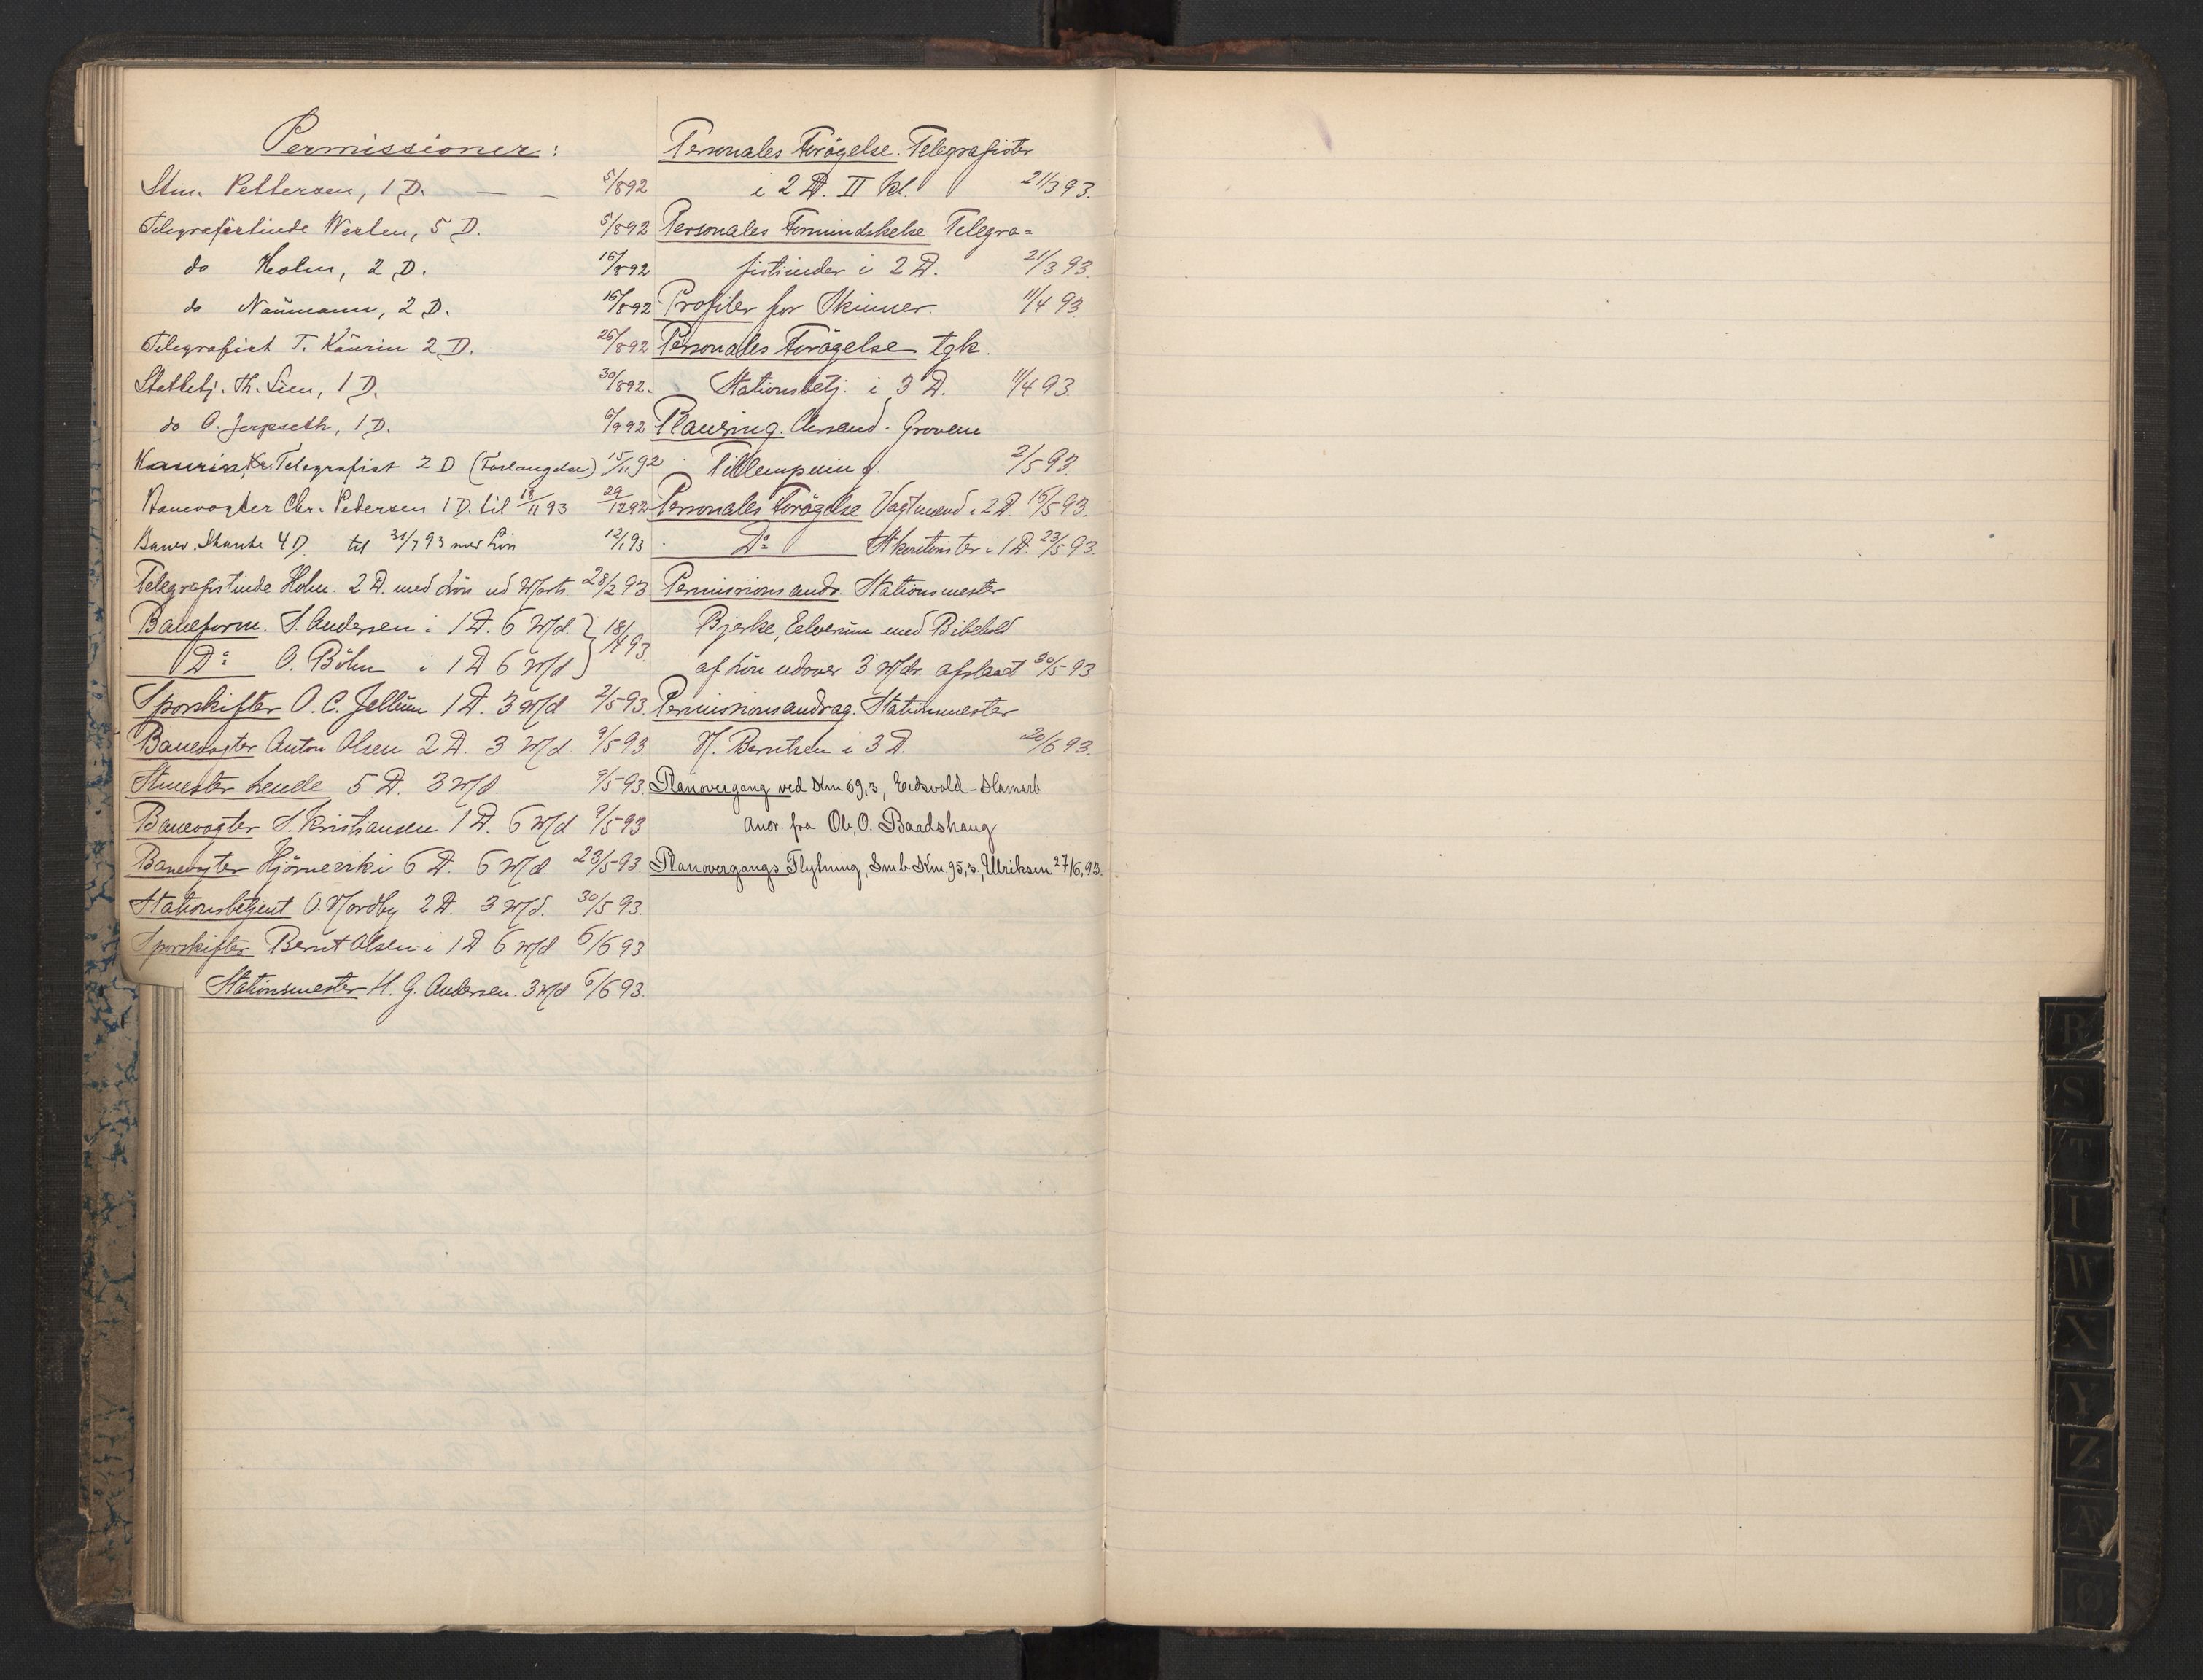 Permissioner:
Stm. Pettersen, 1 D. — — 5/8 92
Telegrafistinde Werlen, 5 D. 5/8 92
do Holm, 2 D. 16/8 92
do Naumann, 2 D. 16/8 92
Telegrafist T. Kaurin 2 D. 26/8 92
Statbetj. Th. Lien, 1 D. 30/8 92.
do O. Jerpseth, 1 D. 6/9 92
Kaurin, Telegrafist 2 D (Forlængelse) 15/11 92
Banevogter Chr. Pedersen 1 D. til 18/11 93 29/12 92
Banev. Skanke 4 D. til 31/7 93 med Løn 12/1 93
Telegrafistinde Holm. 2 D. med Løn ud Marts. 28/2 93
Baneform. S. Andersen i 1 D. 6 Md. } 18/4 93.
Do O. Böhn i 1 D 6 Md }
Sporskifter O. C. Jellum 1 D. 3 Md 2/5 93.
Banevogter Anton Olsen 2 D. 3 Md 9/5 93.
Stmester Lende 5 D. 3 Md. 9/5 93.
Banevogter S. Kristiansen 1 D. 6 Md 9/5 93
Banevogter Hjörnevik i 6 D. 6 Md. 23/5 93.
Stationsbetjent O. Nordby 2 D. 3 Md. 30/5 93.
Sporskifter Bernt Olsen i 1 D 6 Md 6/6 93
Stationsmester H. G. Andersen. 3 Md 6/6 93.
Personales Forögelse. Telegrafister
i 2 D. II Kl. 21/3 93.
Personales Formindskelse Telegra=
fistinder i 2 D. 21/3 93.
Profiler for Skinner. 11/4 93
Personales Forögelse tgk.
Stationsbetj. i 3 D. 11/4 93.
Planering. Chrsand. Grovene
Tillempning. 2/5 93.
Personales Forögelse Vagtmand i 2 D. 16/5 93.
Do Stkontorister i 1 D. 23/5 93.
Permissionsandr. Stationsmester
Bjerke, Elverum med Bibehold
af Løn udover 3 Mdr. afslaaet 30/5 93.
Permissionsandrag. Stationsmester
N. Berntsen i 3 D. 20/6 93.
Planovergang ved Km 69,3, Eidsvold-Hamarb
Andr. fra Ole O. Baadshaug
Planovergangs Flytning, Smb Km. 95,3, Ulriksen 27/6, 93.
R
S
T
U
W
X
Y
Z
Æ
Ø